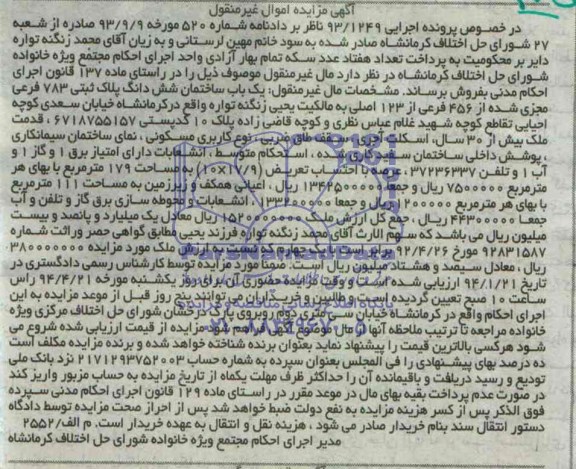 آگهی مزایده اموال غیرمنقول
در خصوص پرونده اجرایی ۹۳/۱۲۴۹ ناظر بر دادنامه شماره ۵۲۰ مورخه ۹۳/۹/۹ صادره از شعبه
۲۷ شورای حل اختلاف کرمانشاه صادر شده به سود خانم مهین لرستانی و به زیان آقای محمد زنگنه تواره
دایر بر محکومیت به پرداخت تعداد هفتاد عدد سکه تمام بهار آزادی واحد اجرای احکام مجتمع ویژه خانواده
شورای حل اختلاف کرمانشاه در نظر دارد مال غیرمنقول موصوف ذیل را در راستای ماده ۱۳۷ قانون اجرای
احکام مدنی بفروش برساند. مشخصات مال غیرمنقول: یک باب ساختمان شش دانگ پلاک ثبتی ۷۸۳ فرعی
مجزی شده از ۴۵۶ فرعی از ۱۲۳ اصلی به مالکیت یحیی زنگنه تواره واقع در کرمانشاه خیابان سعدی کوچه
احیایی تقاطع کوچه شهید غلام عباس نظری و کوچه قاضی زاده پلاک ۱۰ کدپستی ۶۷۱۸۷۵۵۱۵۷ ، قدمت
ملک بیش از ۳۰ سال، اسکلت آجری، سقف طاق ضربی ، نوع کاربری مسکونی ، نمای ساختمان سیمانکاری
، پوشش داخلی ساختمان سفیدکاری شده ، استحکام متوسط ، انشعابات دارای امتیاز برق ۱ و گاز ۱ و
آب ۱ و تلفن ۳۷۲۳۶۳۳۷ ، عرصه با احتساب تعریض (۱۷/۹×۱۰) به مساحت ۱۷۹ مترمربع با بهای هر
مترمربع ۷۵۰۰۰۰۰ ریال و جمعا ۱۳۴۲۵۰۰۰۰۰ ریال ، اعیانی همکف و زیرزمین به مساحت ۱۱۱ مترمربع
با بهای هر مترمربع ۱۲۰۰۰۰۰ ریال و جمعا ۱۳۳۲۰۰۰۰۰ ، انشعابات و محوطه سازی برق گاز و تلفن و آب
جمعا ۴۴۳۰۰۰۰۰ ریال ، جمع کل ارزش ملک ۱۵۲۰۰۰۰۰۰۰ ریال معادل یک میلیارد و پانصد و بیست
میلیون ریال می باشد که سهم الارث آقای محمد زنگنه تواره فرزند یحیی مطابق گواهی حصر وراثت شماره
۹۲۸۳۱۵۸۷ مورخ ۹۲/۴/۲۶ برابر است با یک چهارم که نسبت به ارزش ملک مورد مزایده ۳۸۰۰۰۰۰۰۰
ریال ، معادل سیصد و هشتاد میلیون ریال است. ضمنا مورد مزایده توسط کارشناس رسمی دادگستری در
تاریخ ۹۴/۱/۲۱ ارزیابی شده است و وقت مزایده حضوری آن برای روز یکشنبه مورخه ۹۴/۴/۲۱ راس
ساعت ۱۰ صبح تعیین گردیده است و طالبین و خریداران می توانند پنج روز قبل از موعد مزایده به این
اجرای احکام واقع در کرمانشاه خیابان سی متری دوم روبروی پارک درخشان شورای حل اختلاف مرکزی ویژه
خانواده مراجعه تا ترتیب ملاحظه آنها از مال موضوع مزایده فراهم شود مزایده از قیمت ارزیابی شده شروع می
شود هرکسی بالاترین قیمت را پیشنهاد نماید بعنوان برنده شناخته خواهد شده و برنده مزایده مکلف است
ده درصد بهای پیشنهادی را فی المجلس بعنوان سپرده به شماره حساب ۲۱۷۱۲۹۳۷۵۲۰۰۳ نزد بانک ملی
تودیع و رسید دریافت و باقیمانده آن را حداکثر ظرف مهلت یکماه از تاریخ مزایده به حساب مزبور واریز کند
در صورت عدم پرداخت بقیه بهای مال در موعد مقرر در راستای ماده ۱۲۹ قانون اجرای احکام مدنی سپرده
فوق الذکر پس از کسر هزینه مزایده به نفع دولت ضبط خواهد شد پس از احراز صحت مزایده توسط دادگاه
دستور انتقال سند بنام خریدار صادر می شود ، هزینه نقل و انتقال به عهده خریدار است. م الف/۲۵۵۲
مدیر اجرای احکام مجتمع ویژه خانواده شورای حل اختلاف کرمانشاه